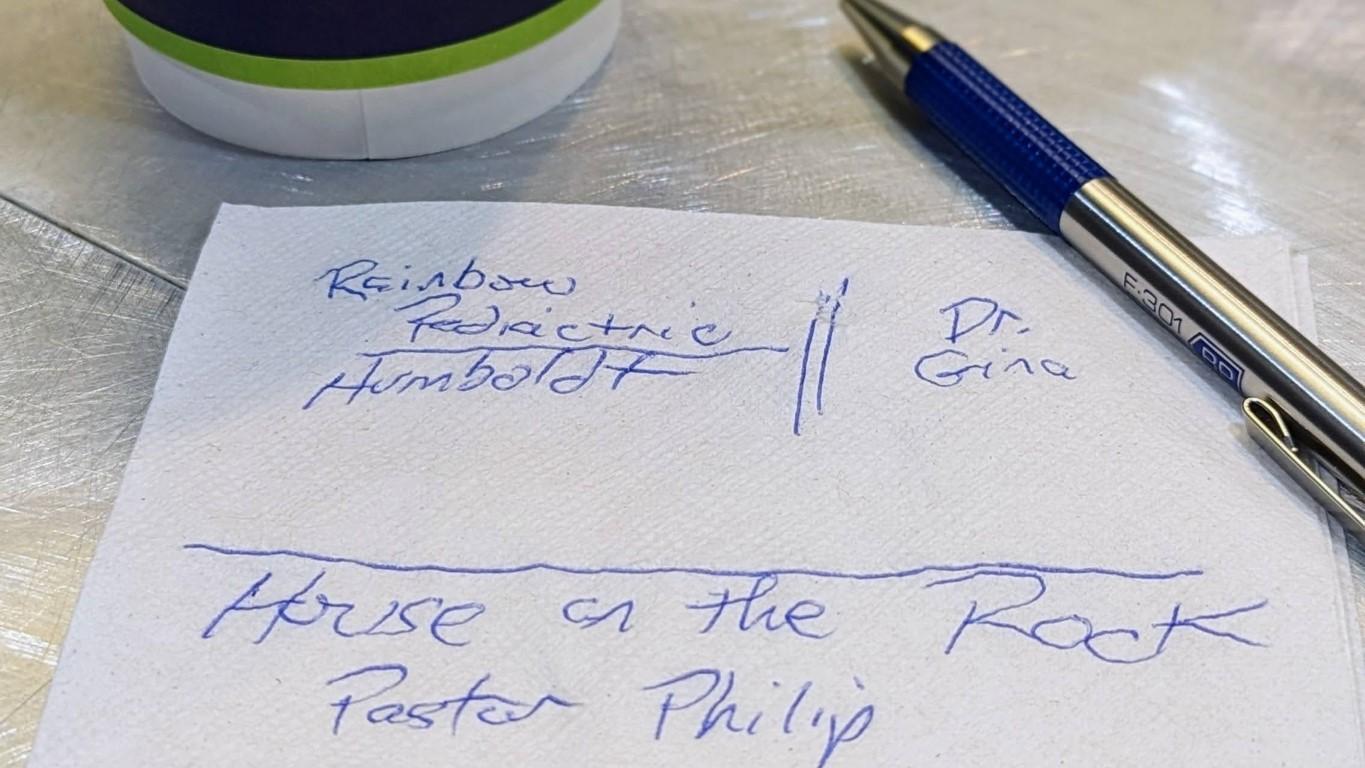 Rainbow
Pediactric
Humboldt
Dr.
Gina
House on the Rock
Pastor Philip
F-301